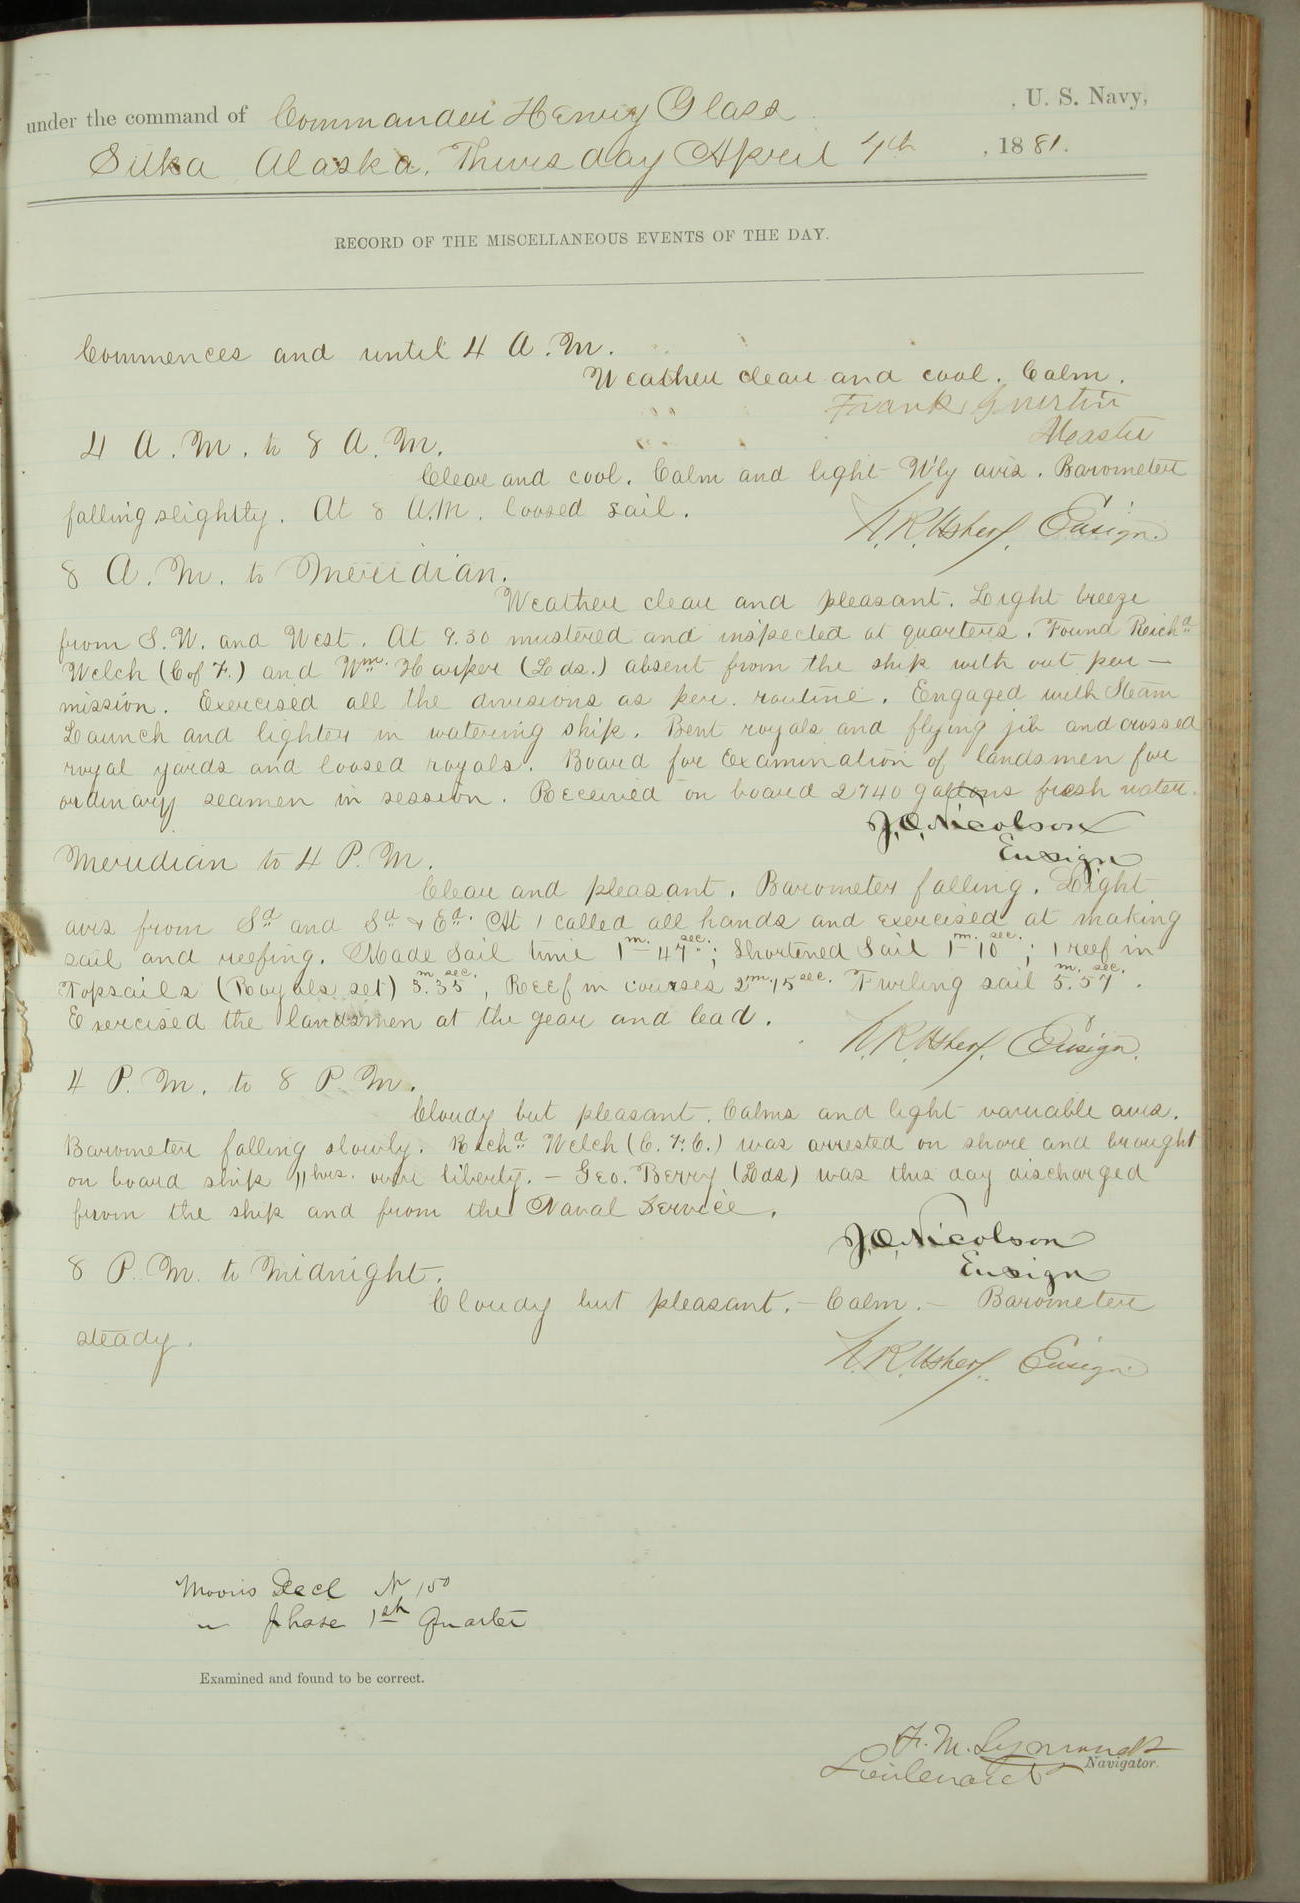 under the command of Commander Henry Glass, U. S. Navy,
Sitka Alaska, Thursday April 7th, 1881.
RECORD OF THE MISCELLANEOUS EVENTS OF THE DAY.
Commences and until 4 A.M.
Weather clear and cool. Calm.
Frank Guertin
Master
4 A.M. to 8 A.M.
Clear and cool. Calm and light W'ly airs. Barometer
falling slightly. At 8 A.M. loosed sail.
N.R. Usher, Ensign.
8 A.M. to Meridian.
Weather clear and pleasant. Light breeze
from S.W. and West. At 9.30 mustered and inspected at quarters. Found Richd
Welch (C of F.) and Wm. Harker (Lds.) absent from the ship with out per—
mission. Exercised all the divisions as per routine. Engaged with Steam
Launch and lighter in watering ship. Bent royals and flying jib and crossed
royal yards and loosed royals. Board for examination of landsmen for
ordinary seamen in session. Received on board 2740 gallons fresh water.
J.O. Nicolson
Ensign
Meridian to 4 P.M.
Clear and pleasant. Barometer falling. Light
airs from Sd and Sd & Ed. At 1 called all hands and exercised at making
sail and reefing. Made Sail time 1m. 47sec.; Shortened Sail 1m. 10sec.; 1 reef in
Topsails (Royals set) 3m. 35sec., Reef in courses 2m. 15sec. Furling sail 5m. 57sec.
Exercised the landsmen at the gear and lead.
N.R. Usher, Ensign.
4 P.M. to 8 P.M.
Cloudy but pleasant. Calms and light variable airs.
Barometer falling slowly. Richd Welch (C. F. C.) was arrested on shore and brought
on board ship 11 hrs. over liberty. — Geo. Berry (Lds) was this day discharged
from the ship and from the Naval Service.
J.O. Nicolson
Ensign
8 P.M. to Midnight.
Cloudy but pleasant. — Calm. — Barometer
steady.
N.R. Usher, Ensign.
Moons Decl N 150
" phase 1st Quarter
Examined and found to be correct.
F. M. Symonds
Lieutenant Navigator.